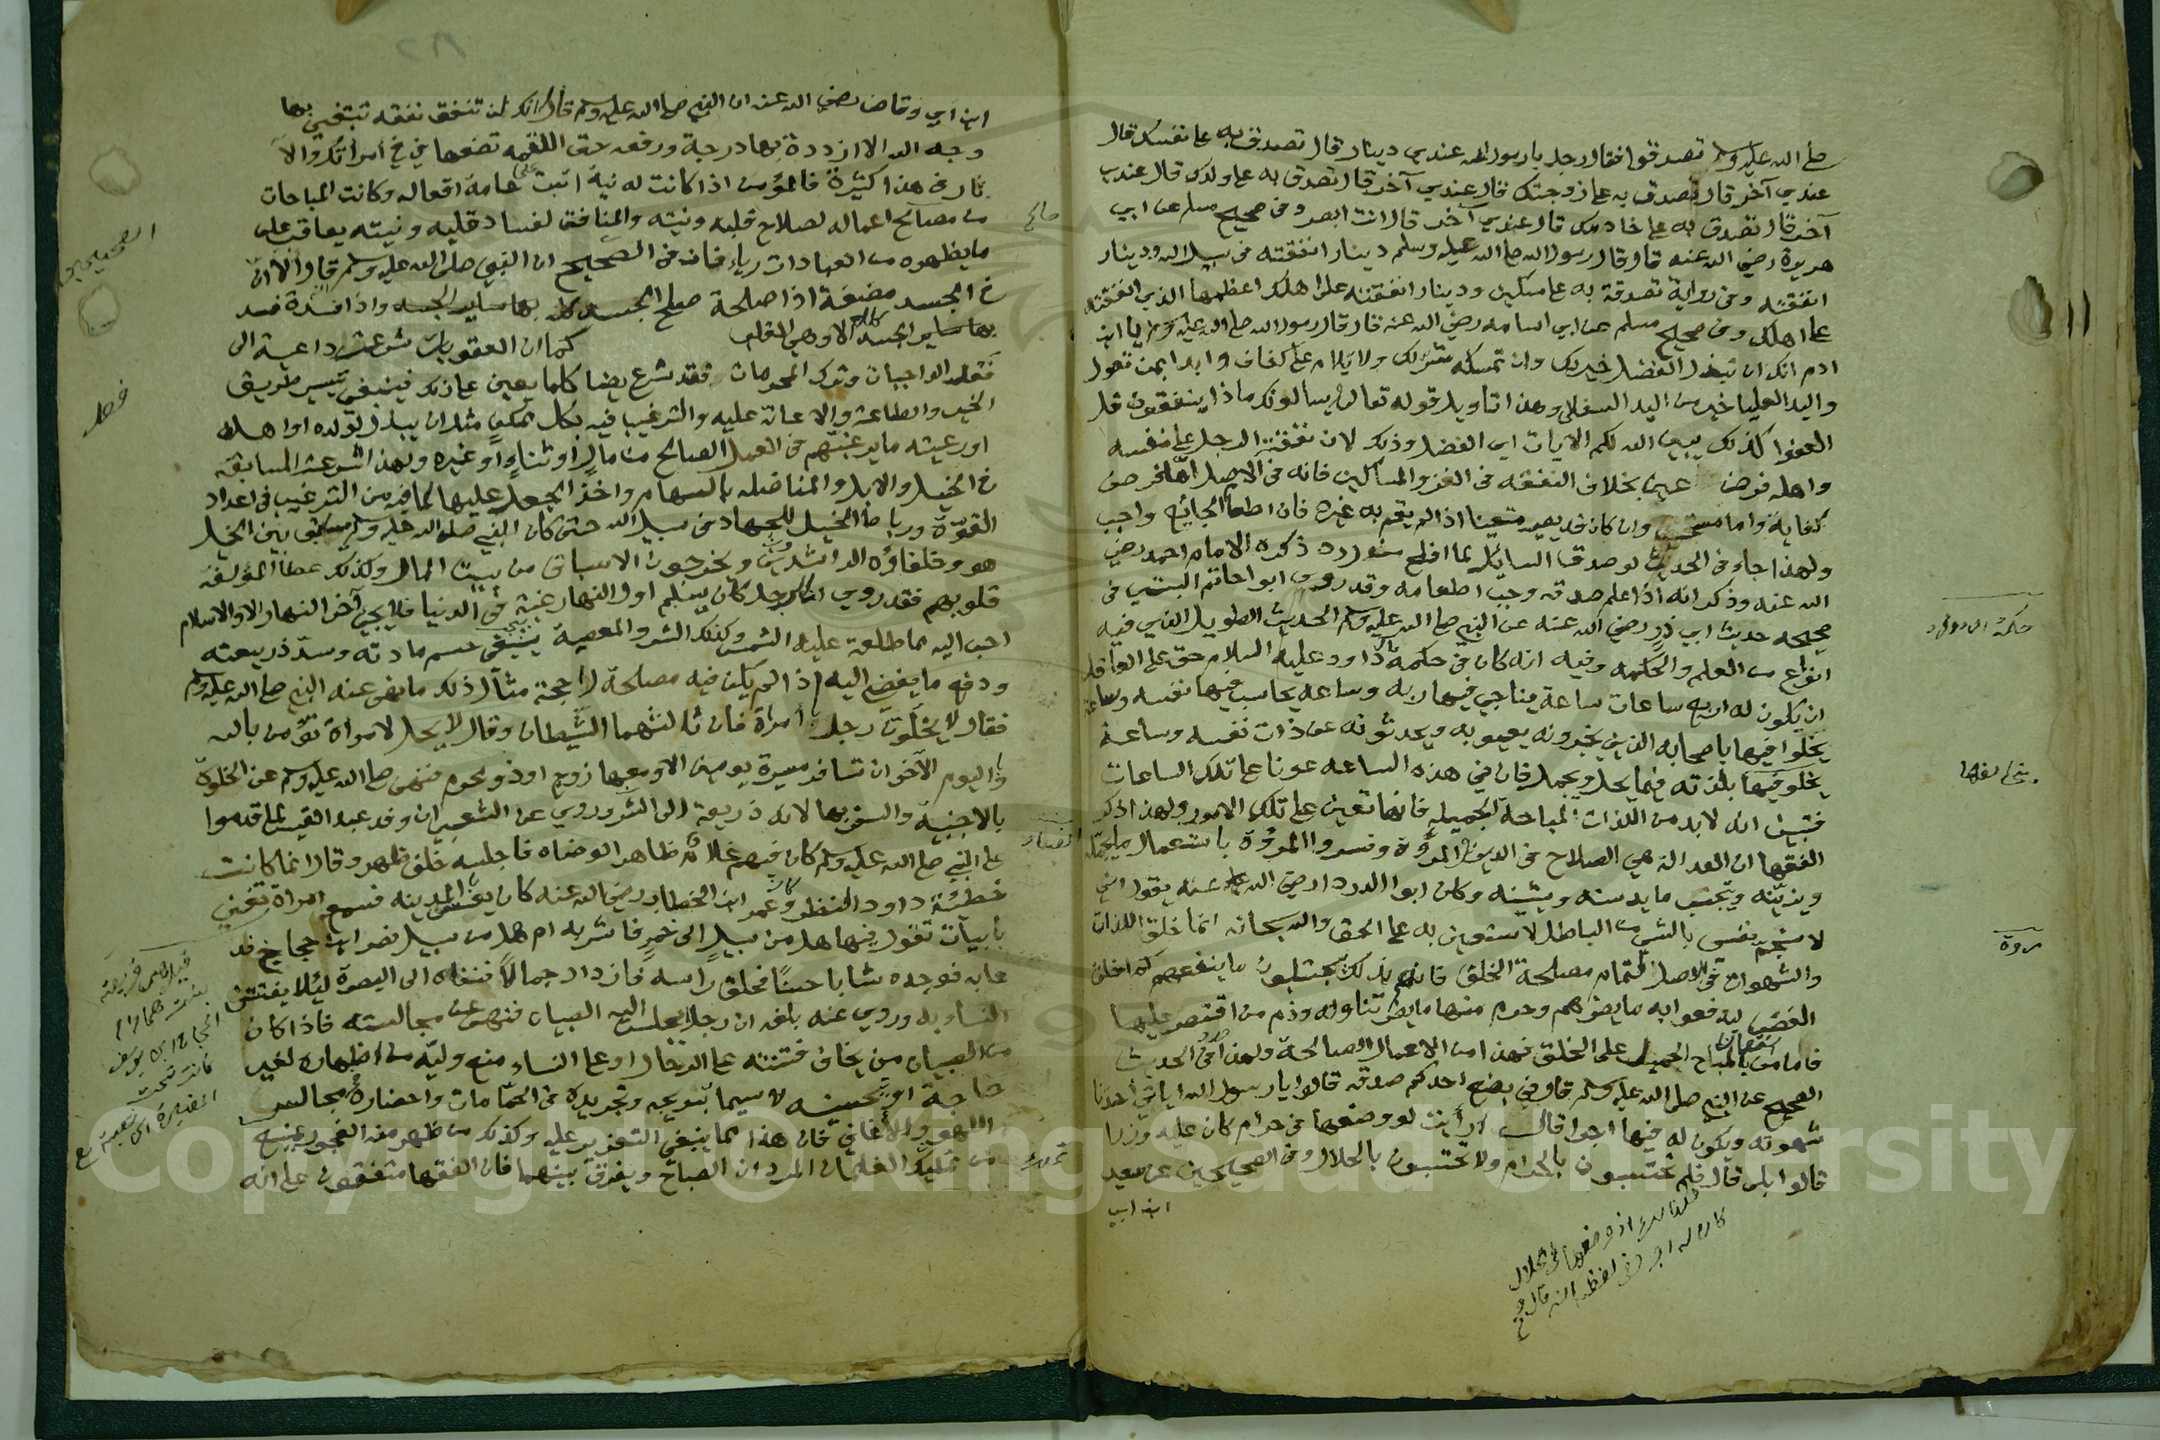 صلى الله عليه وسلم تصدقوا فقال رجل يارسول الله عندي دينار قال تصدق به على نفسك قال
عندي آخر قال تصدق به على زوجتك قال عندي آخر قال تصدق به على ولدك قال عندي
آخر قال تصدق به على خادمك قال عندي آخر قال انت ابصر وفي صحيح مسلم عن ابي
هريرة رضي الله عنه قال قال رسول الله صلى الله عليه وسلم دينار انفقته في سبيل الله ودينار
انفقته وفي رواية تصدقة به على مسكين ودينار انفقته على اهلك اعظمها الذي انفقته
على اهلك وفي صحيح مسلم عن ابي امامه رضي الله عنه قال قال رسول الله صلى الله عليه وسلم يا ابن
ادم انك ان تبذل الفضل خير لك وان تمسكه شر لك ولا تلام على كفاف وابدا بمن تعول
واليد العليا خير من اليد السفلى وهذا تاويل قوله تعالى ويسالونك ماذا ينفقون قل
العفوا كذلك يبين الله لكم الايات اي الفضل وذلك لان نفقة الرجل على نفسه
واهله فرض عين بخلاف النفقه في الغزو والمساكين فانه في الاصل اما فرض
كفاية واما مستحب وان كان قد يصير متعينا اذا لم يقم به غيره فان اطعام الجائع واجب
ولهذا جاء في الحديث لو صدق السايل لما افلح من رده ذكره الامام احمد رضي
الله عنه وذكر انه اذا علم صدقه وجب اطعامه وقد روى ابو حاتم البستي في
صحيحه حديث ابي ذر رضي الله عنه عن النبي صلى الله عليه وسلم الحديث الطويل الذي فيه
انواع من العلم والحكمه وفيه انه كان في حكمة آل داود عليه السلام حق على العاقل
ان يكون له اربع ساعات ساعة يناجي فيها ربه وساعه يحاسب فيها نفسه وساعة
يخلوا فيها باصحابه الذين يخبرونه بعيوبه ويحدثونه عن ذات نفسه وساعة
يخلو فيها بلذته فيما يحل ويجمل فان في هذه الساعه عونا على تلك الساعات
فتبين انه لابد من اللذات المباحة الجميله فانها تعين على تلك الامور ولهذا ذكر
الفقها ان العدالة هي الصلاح في الدين والمروءة وفسروا المروءة باستعمال ما يجمله
ويزينه وتجنب ما يدنسه ويشينه وكان ابوا الدرداء رضي الله عنه يقول اني
لاستجم نفسي بالشي من الباطل لاستعين به على الحق والله سبحانه انما خلق اللذات
والشهوات في الاصل لتمام مصلحة الخلق فانهم بذلك يجتلبون ما ينفعهم كما خلق
الغضب ليدفعوا به ما يضرهم وحرم منها ما يضر تناوله وذم من اقتصر عليها
فاما من استعان بالمباح الجميل على الخلق فهذا من الاعمال الصالحة ولهذا في الحديث
الصحيح عن النبي صلى الله عليه وسلم قال وفي بضع احدكم صدقه قالوا يارسول الله ايأتي أحدنا
شهوته ويكون له فيها اجرا قال أرأيت لو وضعها في حرام كان عليه وزرا
قالوا بلى قال فلم تحتسبون بالحرام ولا تحتسبون بالحلال وفي الصحيحين عن سعيد
ابن ابي
ابن ابي وقاص رضي الله عنه ان النبي صلى الله عليه وسلم قال انك لن تنفق نفقه تبتغي بها
وجه الله الا ازددة بها درجة ورفعه حتى اللقمه تضعها في في امرأتك والا
ثار في هذا كثيرة فالمؤمن اذا كانت له نية اتت على عامة افعاله وكانت المباحات
من مصالح اعماله لصلاح قلبه ونيته والمنافق لفساد قلبه ونيته يعاقب على
ما يظهره من العبادات رياء فان في الصحيح ان النبي صلى الله عليه وسلم قال الا ان
في الجسد مضغة اذا صلحة صلح الجسد كله بها ساير الجسد واذا فسدة فسد
بها ساير الجسد كله الا وهي القلب
كما ان العقوبات شرعت داعية الى
فعل الواجبات وترك المحرمات فقد شرع ايضا كلما يعين على ذلك فينبغي تيسير طريق
الخير والطاعة والاعانة عليه والترغيب فيه بكل ممكن مثل ان يبذل لولده او اهله
او رعيته ما يرغبهم في العمل الصالح من مال او ثناء او غيره ولهذا شرعت المسابقة
في الخيل والابل والمناضله بالسهام واخذ الجعل عليها لما فيه من الترغيب في اعداد
القوة ورباط الخيل للجهاد في سبيل الله حتى كان النبي صلى الله عليه وسلم يسابق بين الخيل
هو وخلفاؤه الراشدين ويخرجون الاسباق من بيت المال وكذلك عطا المؤلفة
قلوبهم فقد روي ان الرجل كان يسلم اول النهار رغبة في الدنيا فلا يجي آخر النهار الا والاسلام
احب اليه مما طلعة عليه الشمس وكذلك الشر والمعصية ينبغي حسم مادته وسد ذريعته
ودفع ما يفضي اليه اذا لم يكن فيه مصلحة راجحة مثال ذلك ما نهى عنه النبي صلى الله عليه وسلم
فقال لا يخلون رجل بامراة فان ثالثهما الشيطان وقال لا يحل لامراة تؤمن بالله
واليوم الآخر ان تسافر مسيرة يومين الا ومعها زوج او ذو محرم فنهى صلى الله عليه وسلم عن الخلوة
بالاجنبية والسفر بها لانه ذريعة الى الشر وروي عن الشعبي ان وفد عبد القيس لما قدموا
على النبي صلى الله عليه وسلم كان فيهم غلام ظاهر الوضاه فاجلسه خلف ظهره وقال انما كانت
خطيئة داود النظر وعمر ابن الخطاب رضي الله عنه كان يعس بالمدينه فسمع امراة تغني
بأبيات تقول فيها هل من سبيل الى خمر فاشربه ام هل من سبيل نصر ابن حجاج فد
عا به فوجده شابا حسنا فحلق راسه فازداد جمالا فنفاه الى البصرة ليلا يفتتن
النساء به وروي عنه بلغه ان رجلا يجلس اليه الصبيان فنهى عن مجالسته فاذا كان
من الصبيان من يخاف فتنته على الرجال او على النساء منع وليه من اظهاره لغير
حاجة او تحسينه لا سيما بترويحه وتجريده في الحمامات واحضاره مجالس
اللهو والأغاني فان هذا مما ينبغي التعزير عليه وكذلك من ظهر منه الفجور يمنع
من تمليك الغلمان المردان الصباح ويفرق بينهما فان الفقها متفقون على انه
فصل
صالح
مروة
Copyright © King Saud University